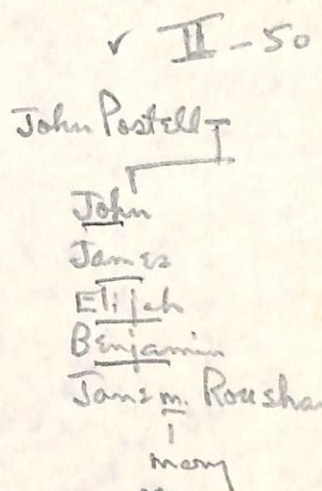 ✓ II - 50
John Postell
John
James
Elijah
Benjamin
Jane m.
Mary